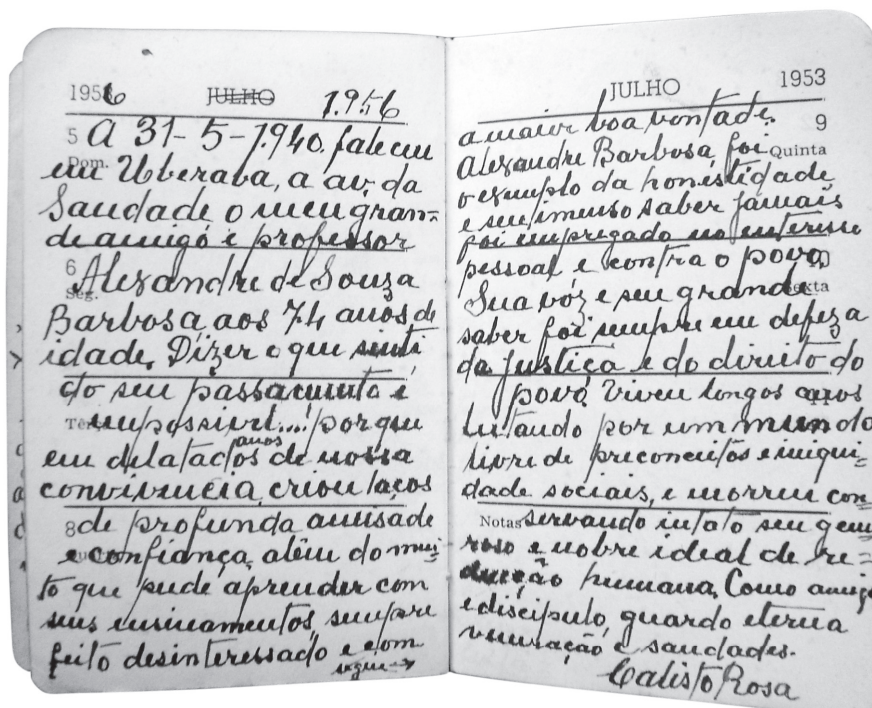 1956 JULHO 1.956
5 A 31-5-1.940. faleceu
Dom.
em Uberaba, a av. da
Saudade o meu gran=
de amigo e professor
6 Alexandre de Souza
Seg.
Barbosa, aos 74 anos de
idade. Dizer o que senti
do seu passamento é
Ter
impossivel....! porque
em delatados anos de nossa
convivencia, criou laços
8 de profunda amisade
e confiança, alêm do mui=
to que pude aprender com
seus ensinamentos, sempre
feito desinteressado e com
segue→
JULHO 1953
a maior boa vontade.
9
Alexandre Barbosa, foi
Quinta
o exemplo da honestidade
e seu imenso saber jámais
foi empregado no interesse
pessoal e contra o povo.
10
Sua vóz e seu grande
Sexta
saber foi sempre em defeza
da justiça e do direito do
povo. Viveu longos anos
lutando por um mundo
livre de preconceitos e iniqui=
dade sociais, e morreu con=
Notas servando intato seu gene
roso e nobre ideal de re=
denção humana. Como amigo
e discipulo, guardo eterna
veneração e saudades.
Calisto Rosa